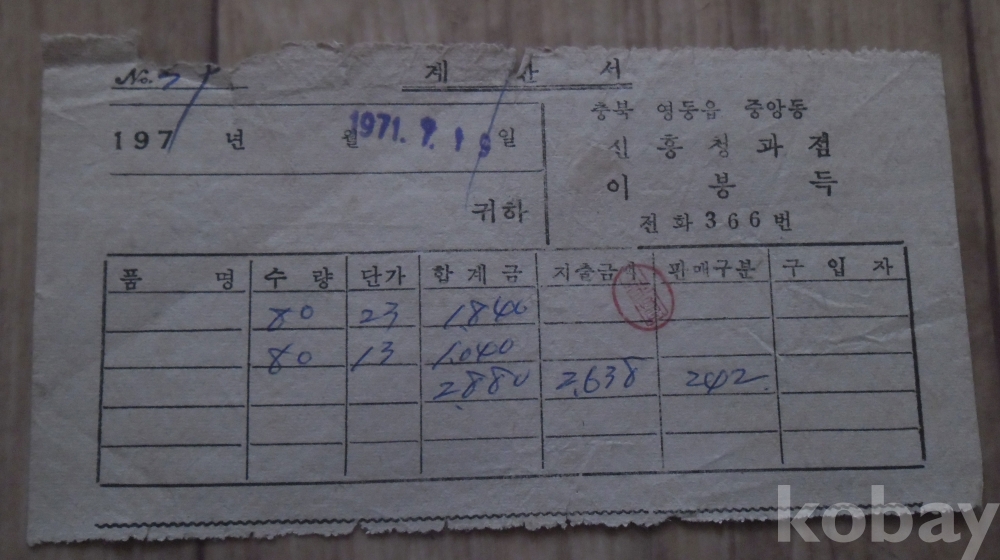 No. 51
계 산 서
197 년 월 1971. 7. 19 일
귀하
충북 영동읍 중앙동
신 흥 청 과 점
이 봉 득
전 화 3 6 6 번
품 명 수 량 단가 합계금 지출금 판매구분 구 입 자
80 23 1840
80 13 1,040
2,880 2,638 242
kobay